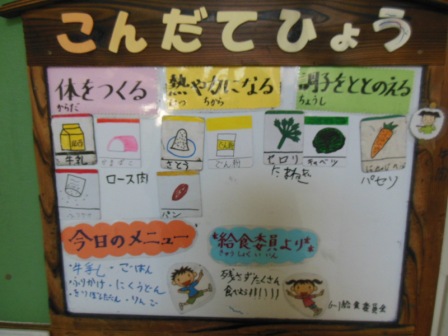 こんだてひょう
体をつくる
からだ
熱や力になる
ねつ ちから
調子をととのえる
ちょうし
牛乳
ロース肉
さとう
パン
セロリ
たまねぎ
キャベツ
にんじん
パセリ
今日のメニュー
・牛乳 ・ごはん
・ふりかけ ・にくうどん
・りんご
給食委員より
きゅうしょくいいん
残さずたくさん
食べよう!!!!
6-1給食委員会